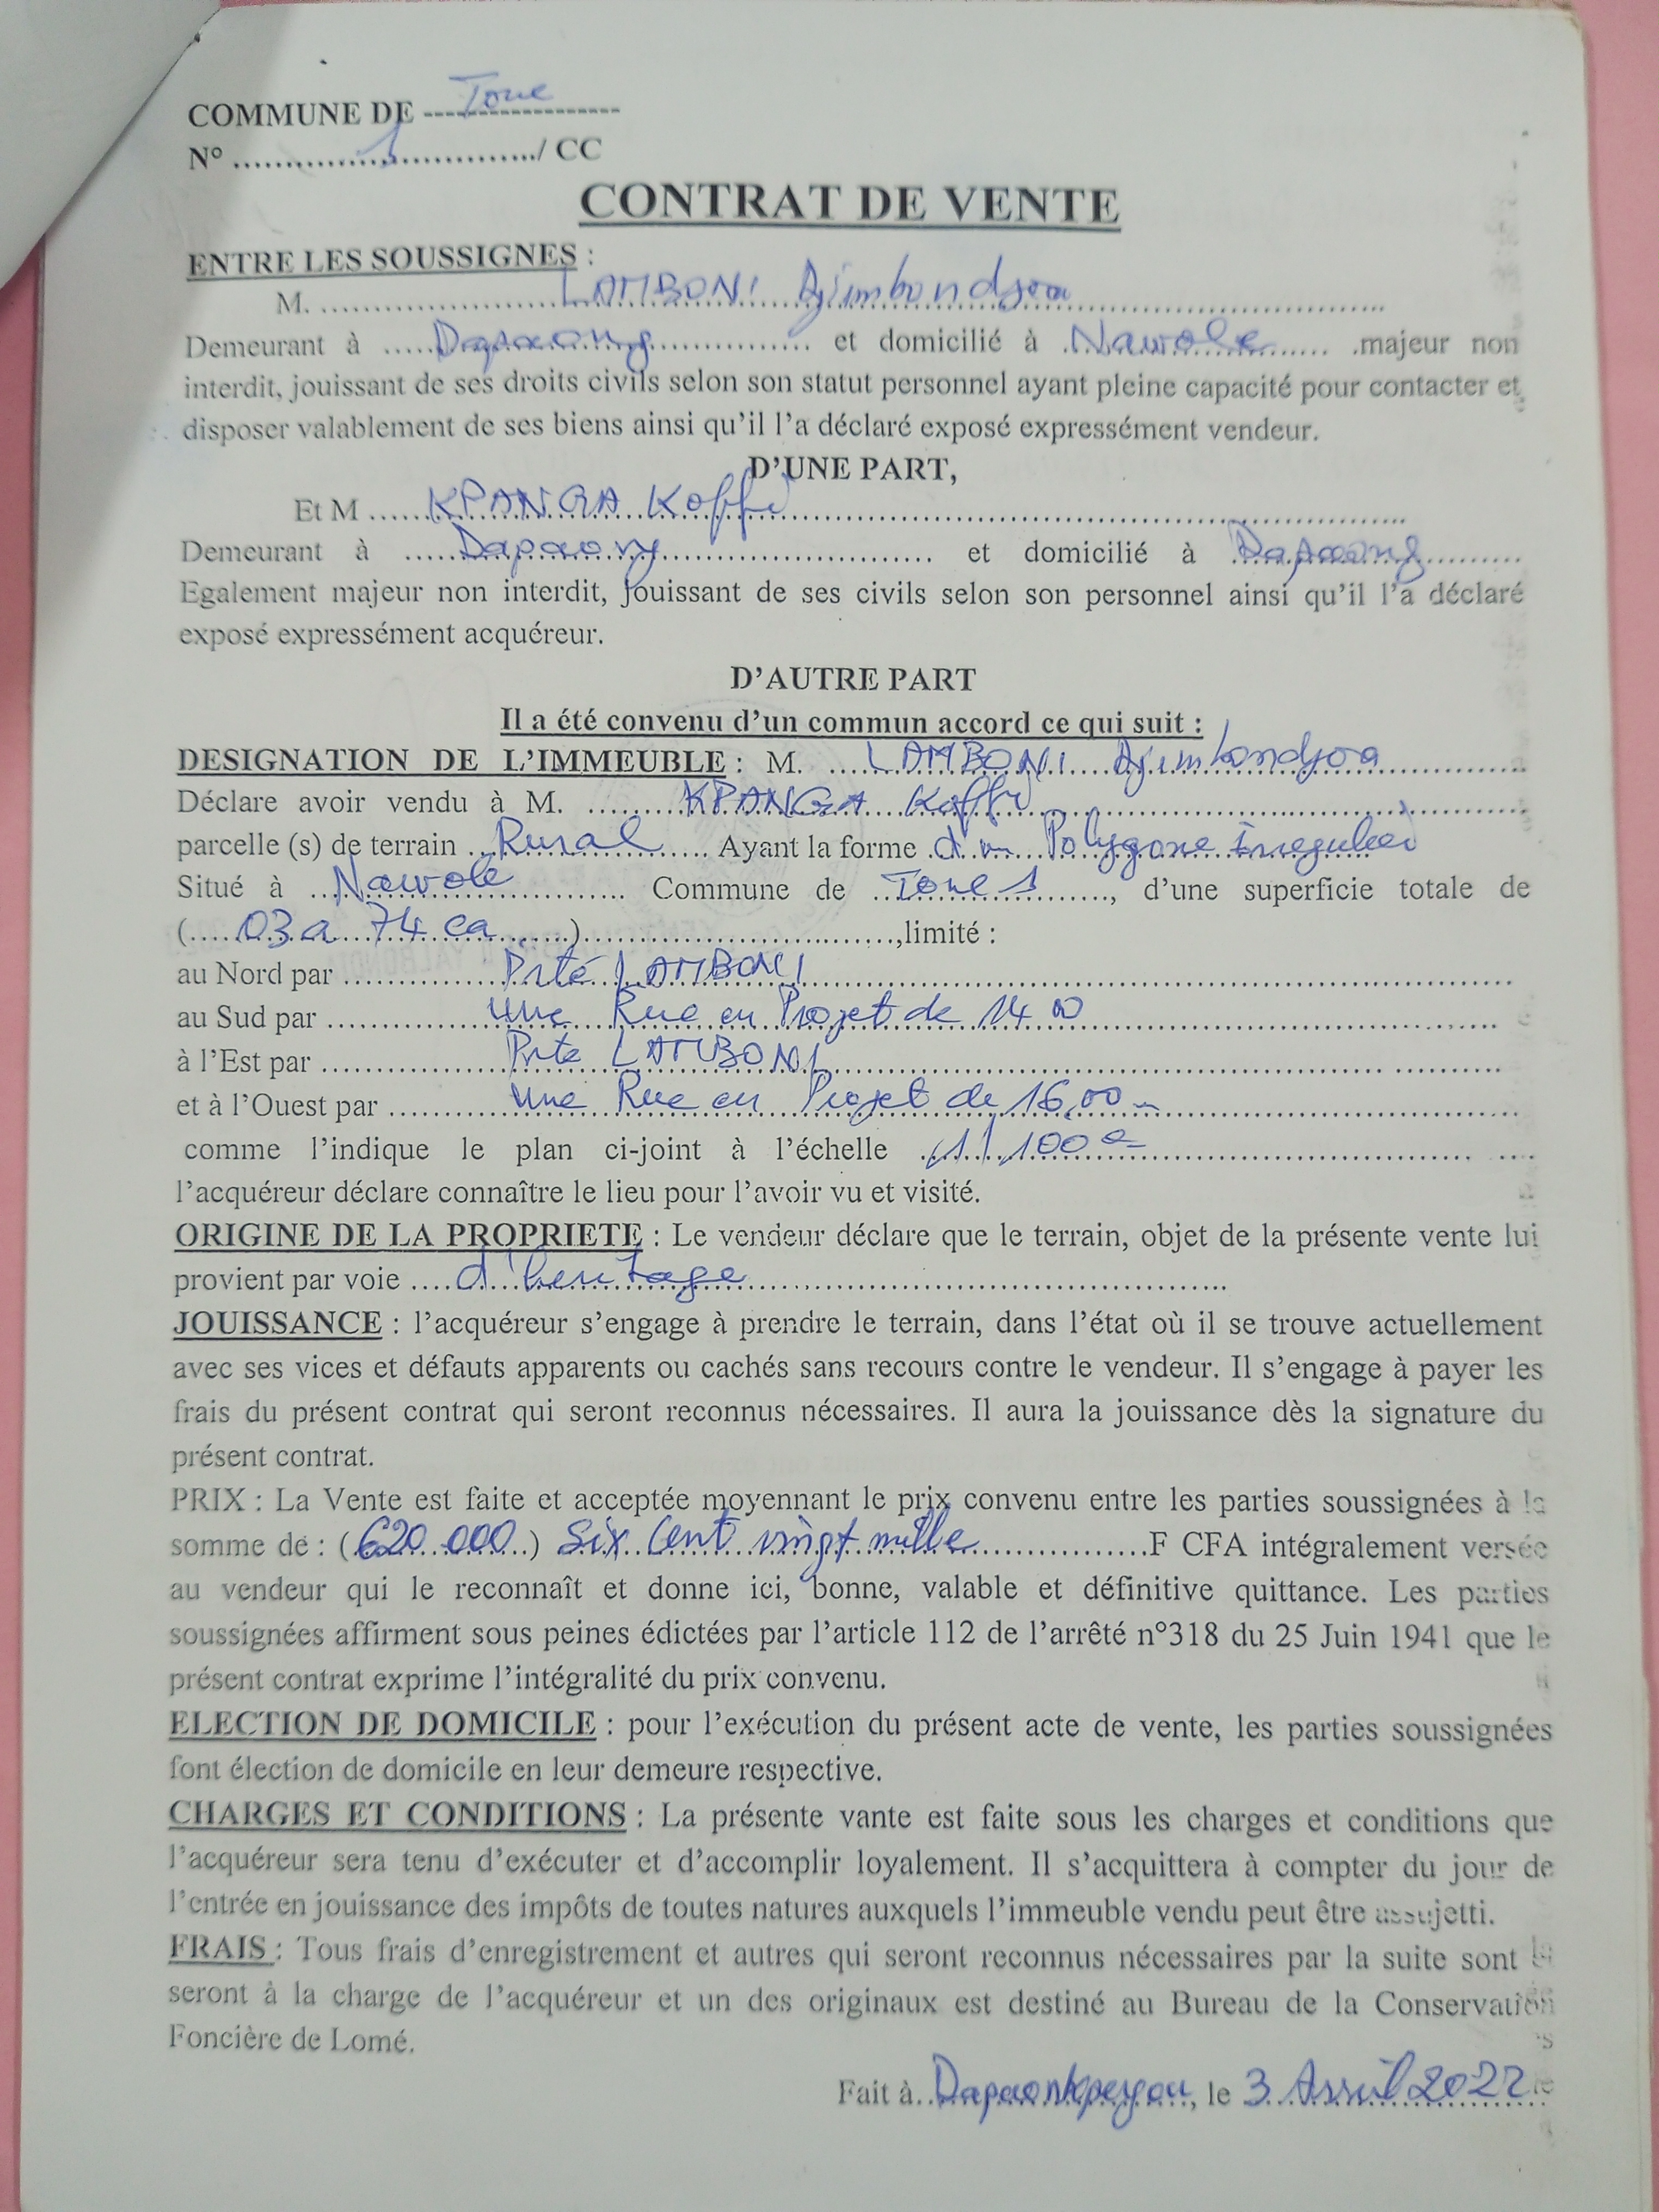 COMMUNE DE Tone
N° ..............1............../ CC
CONTRAT DE VENTE
ENTRE LES SOUSSIGNES :
M. LAMBONI Djimbondjoa
Demeurant à Dapaong et domicilié à Nawolé .majeur non
interdit, jouissant de ses droits civils selon son statut personnel ayant pleine capacité pour contacter et
disposer valablement de ses biens ainsi qu'il l'a déclaré exposé expressément vendeur.
D'UNE PART,
Et M KPANGA Koffi
Demeurant à Dapaong et domicilié à Dapaong
Egalement majeur non interdit, jouissant de ses civils selon son personnel ainsi qu'il l'a déclaré
exposé expressément acquéreur.
D'AUTRE PART
Il a été convenu d'un commun accord ce qui suit :
DESIGNATION DE L'IMMEUBLE : M. LAMBONI Djimbondjoa
Déclare avoir vendu à M. KPANGA Koffi
parcelle (s) de terrain Rural Ayant la forme d'un Polygone irregulier
Situé à Nawolé Commune de Tone 1, d'une superficie totale de
(03 a 74 ca) ,limité :
au Nord par Prté LAMBONI
au Sud par une Rue en Projet de 14
à l'Est par Prté LAMBONI
et à l'Ouest par une Rue en Projet de 16,00 m
comme l'indique le plan ci-joint à l'échelle
l'acquéreur déclare connaître le lieu pour l'avoir vu et visité.
ORIGINE DE LA PROPRIETE : Le vendeur déclare que le terrain, objet de la présente vente lui
provient par voie d'heritage
JOUISSANCE : l'acquéreur s'engage à prendre le terrain, dans l'état où il se trouve actuellement
avec ses vices et défauts apparents ou cachés sans recours contre le vendeur. Il s'engage à payer les
frais du présent contrat qui seront reconnus nécessaires. Il aura la jouissance dès la signature du
présent contrat.
PRIX : La Vente est faite et acceptée moyennant le prix convenu entre les parties soussignées à la
somme de : (620 000) Six Cent vingt mille F CFA intégralement versée
au vendeur qui le reconnaît et donne ici, bonne, valable et définitive quittance. Les parties
soussignées affirment sous peines édictées par l'article 112 de l'arrêté n°318 du 25 Juin 1941 que le
présent contrat exprime l'intégralité du prix convenu.
ELECTION DE DOMICILE : pour l'exécution du présent acte de vente, les parties soussignées
font élection de domicile en leur demeure respective.
CHARGES ET CONDITIONS : La présente vante est faite sous les charges et conditions que
l'acquéreur sera tenu d'exécuter et d'accomplir loyalement. Il s'acquittera à compter du jour de
l'entrée en jouissance des impôts de toutes natures auxquels l'immeuble vendu peut être assujetti.
FRAIS : Tous frais d'enregistrement et autres qui seront reconnus nécessaires par la suite sont
seront à la charge de l'acquéreur et un des originaux est destiné au Bureau de la Conservation
Foncière de Lomé.
Fait à , le 3 Avril 2022